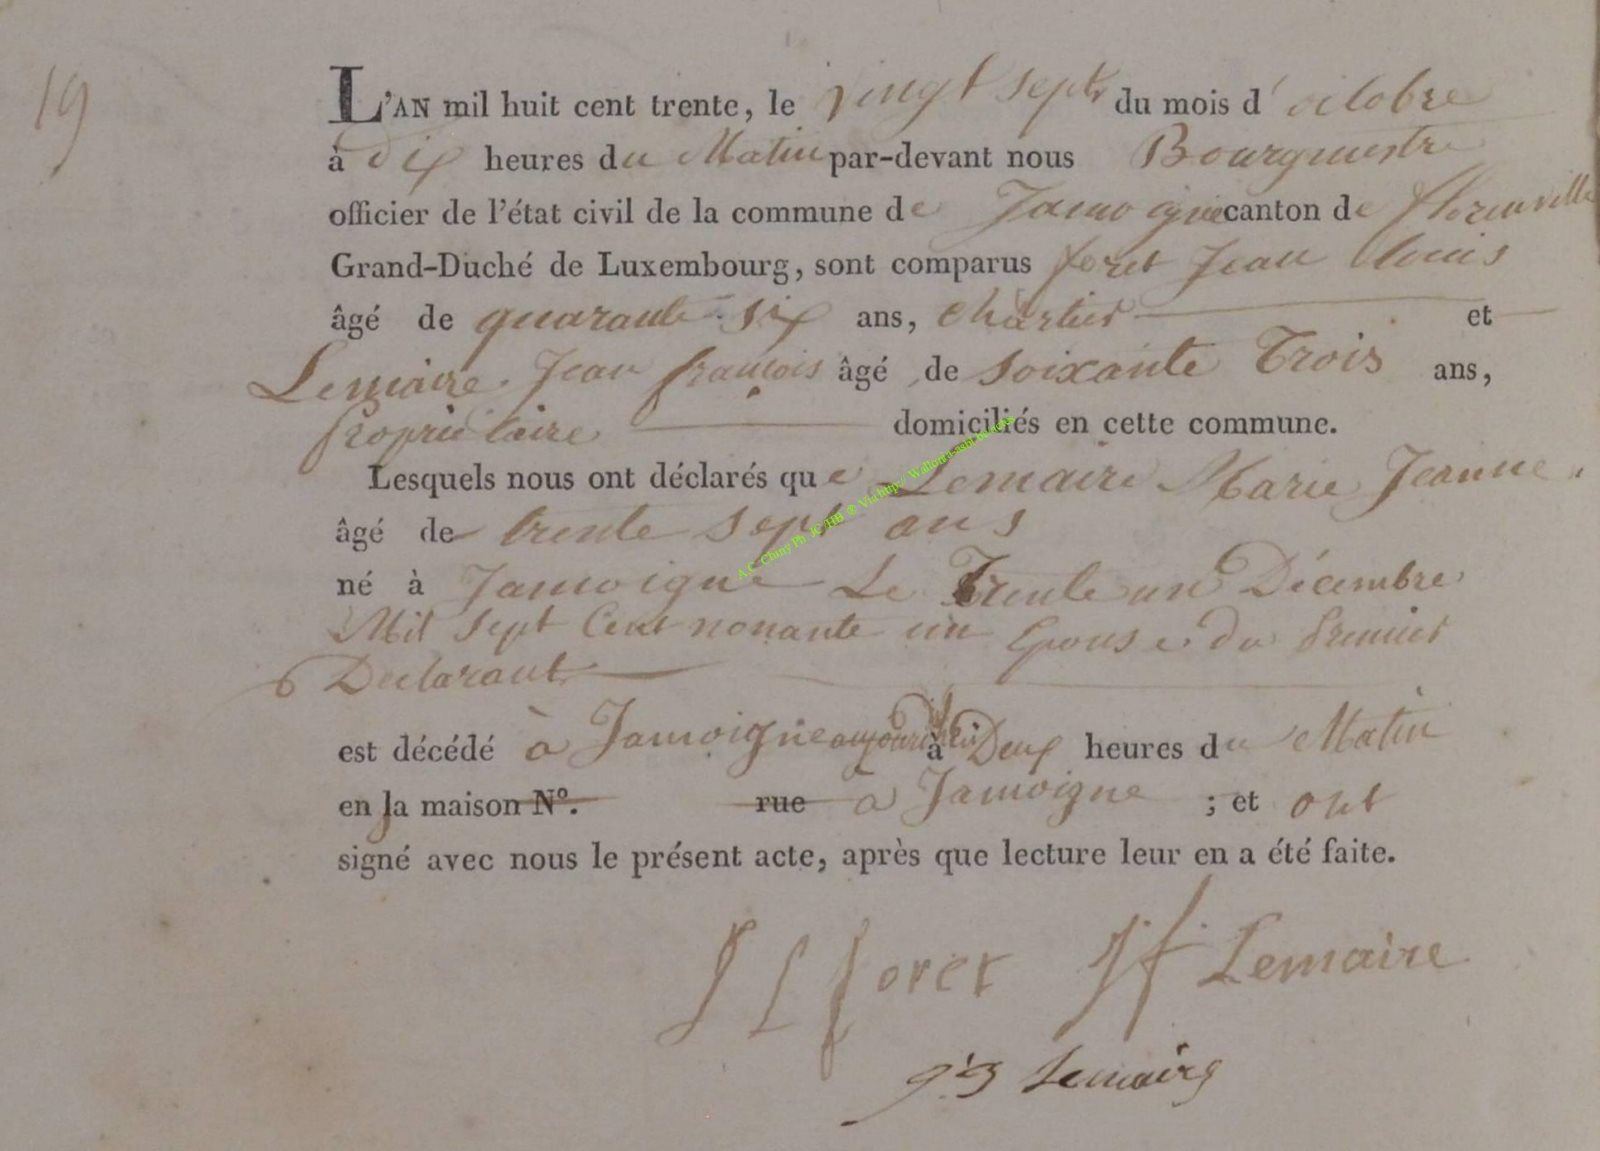 19
L'AN mil huit cent trente, le vingt sept du mois d'octobre
à Dix heures du Matin par-devant nous Bourgmestre
officier de l'état civil de la commune de Jamoigne canton de florenville
Grand-Duché de Luxembourg, sont comparus foret Jean Louis
âgé de quarante six ans, Chartier et
Lemaire Jean francois âgé de soixante Trois ans,
proprietaire domiciliés en cette commune.
Lesquels nous ont déclarés que Lemaire Marie Jeanne
âgé de trente sept ans
né à Jamoigne Le Trente un Décembre
Mil sept Cent nonante un Epouse du Premier
Declarant
est décédé à Jamoigne aujourd'hui à Deux heures du Matin
en la maison N°. rue à Jamoigne ; et ont
signé avec nous le présent acte, après que lecture leur en a été faite.
J L foret J f Lemaire
Lemaire
A.C. Chiny Ph. JC/HB © Via http:// Wallonia-asbl.be